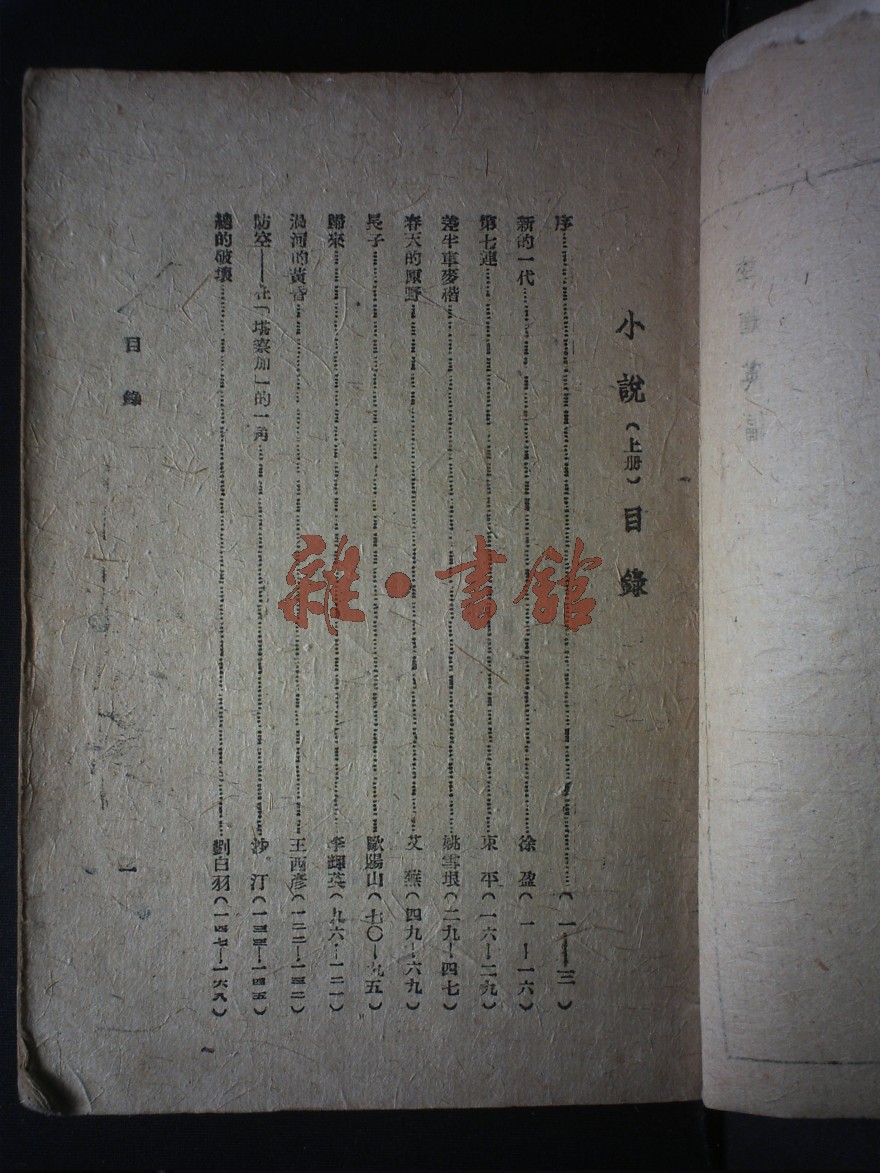 小說（上册）目錄
序……（一——三）
新的一代……徐盈（一——一六）
第七連……東平（一六——二九）
差半車麥稭……姚雪垠（二九——四七）
春天的原野……艾蕪（四九——六九）
長子……歐陽山（七〇——九五）
歸來……李輝英（九六——一二一）
渦河的黃昏……王西彥（一二二——一三二）
防空——在「塔察加」的一角……沙汀（一三三——一四五）
總的破壞……劉白羽（一四七——一六八）
目錄
一
雜·書館